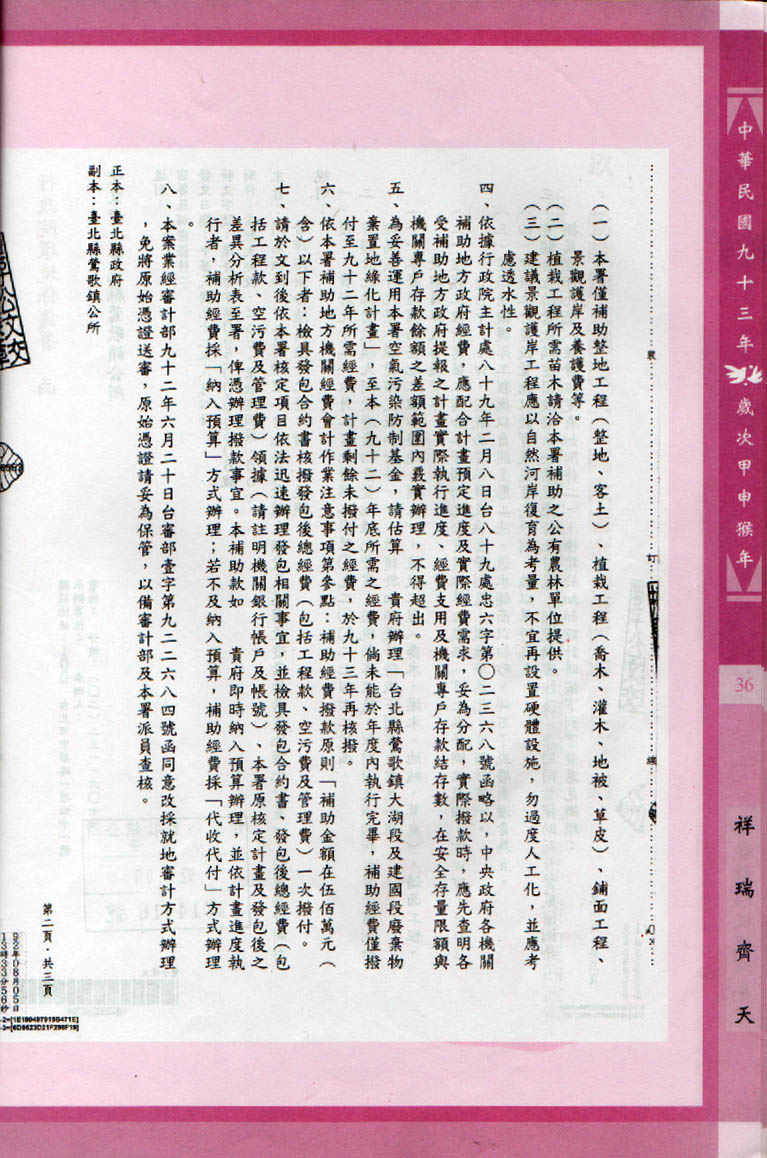 中華民國九十三年 歲次甲申猴年
36
祥瑞齊天
裝
訂
線
（一）本署僅補助整地工程（整地、客土）、植栽工程（喬木、灌木、地被、草皮）、鋪面工程、
景觀護岸及養護費等。
（二）植栽工程所需苗木請洽本署補助之公有農林單位提供。
（三）建議景觀護岸工程應以自然河岸復育為考量，不宜再設置硬體設施，勿過度人工化，並應考
慮透水性。
四、依據行政院主計處八十九年二月八日台八十九處忠六字第○二三六八號函略以，中央政府各機關
補助地方政府經費，應配合計畫預定進度及實際經費需求，妥為分配，實際撥款時，應先查明各
受補助地方政府提報之計畫實際執行進度、經費支用及機關專戶存款結存數，在安全存量限額與
機關專戶存款餘額之差額範圍內覈實辦理，不得超出。
五、為妥善運用本署空氣污染防制基金，請估算　貴府辦理「台北縣鶯歌鎮大湖段及建國段廢棄物
棄置地綠化計畫」，至本（九十二）年底所需之經費，倘未能於年度內執行完畢，補助經費僅撥
付至九十二年所需經費，計畫剩餘未撥付之經費，於九十三年再核撥。
六、依本署補助地方機關經費會計作業注意事項第參點：補助經費撥款原則「補助金額在伍佰萬元（
含）以下者：檢具發包合約書核撥發包後總經費（包括工程款、空污費及管理費）一次撥付。
七、請於文到後依本署核定項目依法迅速辦理發包相關事宜，並檢具發包合約書、發包後總經費（包
括工程款、空污費及管理費）領據（請註明機關銀行帳戶及帳號）、本署原核定計畫及發包後之
差異分析表至署，俾憑辦理撥款事宜。本補助款如　貴府即時納入預算辦理，並依計畫進度執
行者，補助經費採「納入預算」方式辦理；若不及納入預算，補助經費採「代收代付」方式辦理
。
八、本案業經審計部九十二年六月二十日台審部壹字第九二二六八四號函同意改採就地審計方式辦理
，免將原始憑證送審，原始憑證請妥為保管，以備審計部及本署派員查核。
正本：臺北縣政府
副本：臺北縣鶯歌鎮公所
第二頁．共三頁
92年08月05日
13時33分56秒